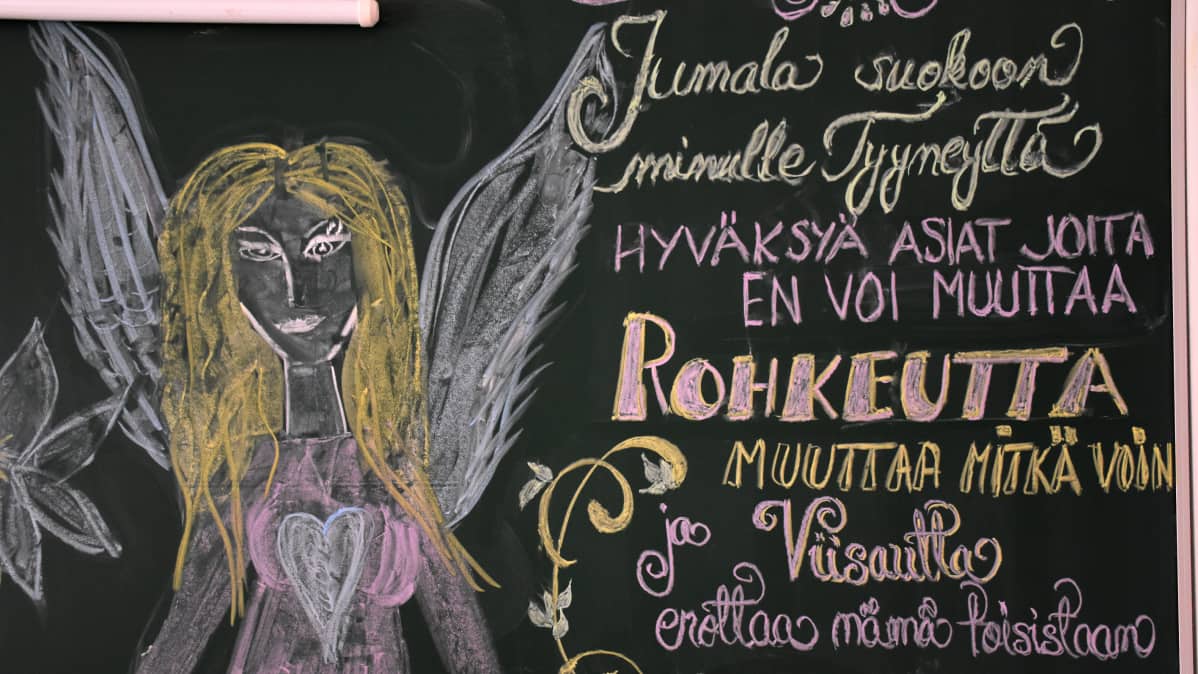 Jumala suokoon
minulle Tyyneyttä
HYVÄKSYÄ ASIAT JOITA
EN VOI MUUTTAA
ROHKEUTTA
MUUTTAA MITKÄ VOIN
ja Viisautta
erottaa nämä toisistaan